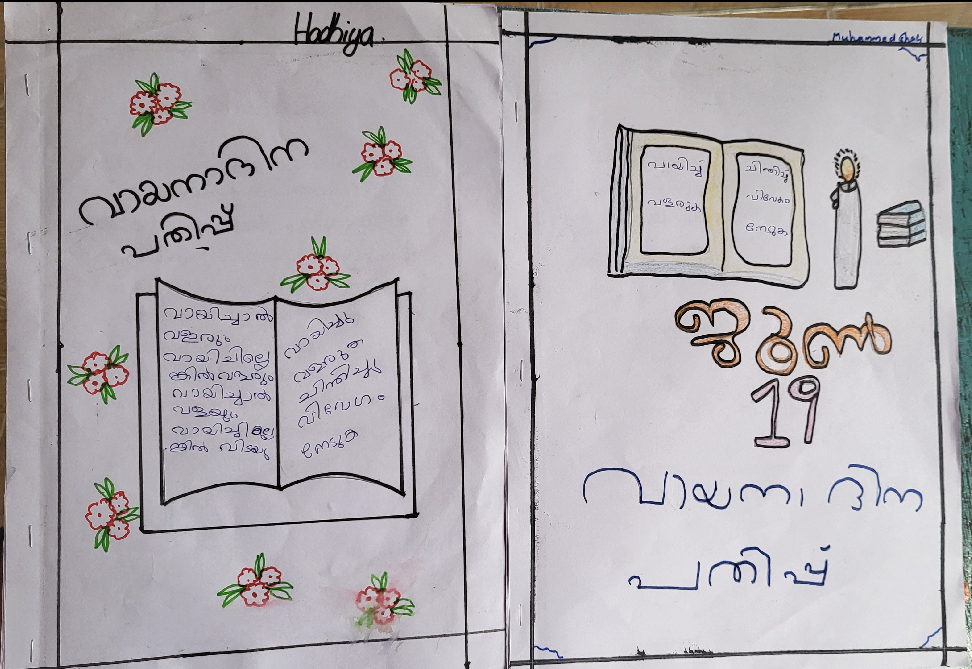 Hadhiya.
വായനാദിന
പതിപ്പ്
വായിച്ചാൽ
വളരും
വായിചില്ലെ
ങ്കിൽ വളരും
വായിച്ചാൽ
വളയും
വായിച്ചില്ലെ
ങ്കിൽ
വായിച്ചു
വളരുക
ചിന്തിച്ചു
വിവേഗം
നേടുക
Muhammed
വായിച്ചു
വളരുക
ചിന്തിച്ചു
വിവേകം
നേടുക
ജൂൺ
19
വായനാ ദിന
പതിപ്പ്